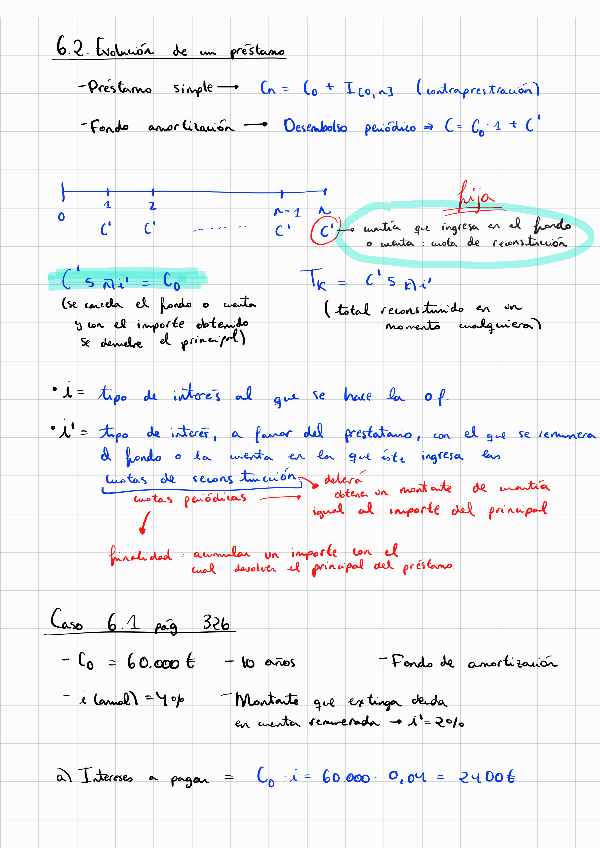 6.2. Evolución de un préstamo
- Préstamo simple → Cn = C0 + I[0,n] (contraprestación)
- Fondo amortización → Desembolso periódico ⇒ C = C0 · i + C'
fija
0 1 2 n-1 n
C' C' ...... C' C' → cuantía que ingresa en el fondo
o cuenta : cuota de reconstitución
C' S n┐i' = C0
TK = C' S K┐i'
(se cancela el fondo o cuenta
y con el importe obtenido
se devuelve el principal)
(total reconstruido en un
momento cualquiera)
• i = tipo de interés al que se hace la op.
• i' = tipo de interés, a favor del prestatario, con el que se remunera
el fondo o la cuenta en la que éste ingresa las
cuotas de reconstitución → deberá
obtener un montante de cuantía
igual al importe del principal
cuotas periódicas
finalidad : acumular un importe con el
cual devolver el principal del préstamo.
Caso 6.1 pág 326
- C0 = 60.000 € - 10 años - Fondo de amortización
- i (anual) = 4% - Montante que extinga deuda
en cuenta remunerada → i' = 2%
a) Intereses a pagar = C0 · i = 60.000 · 0,04 = 2400 €